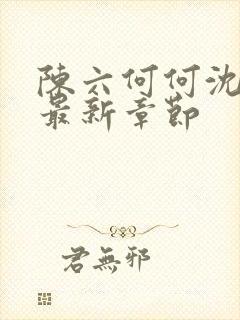 陳六何何沈
最新章節
君無邪